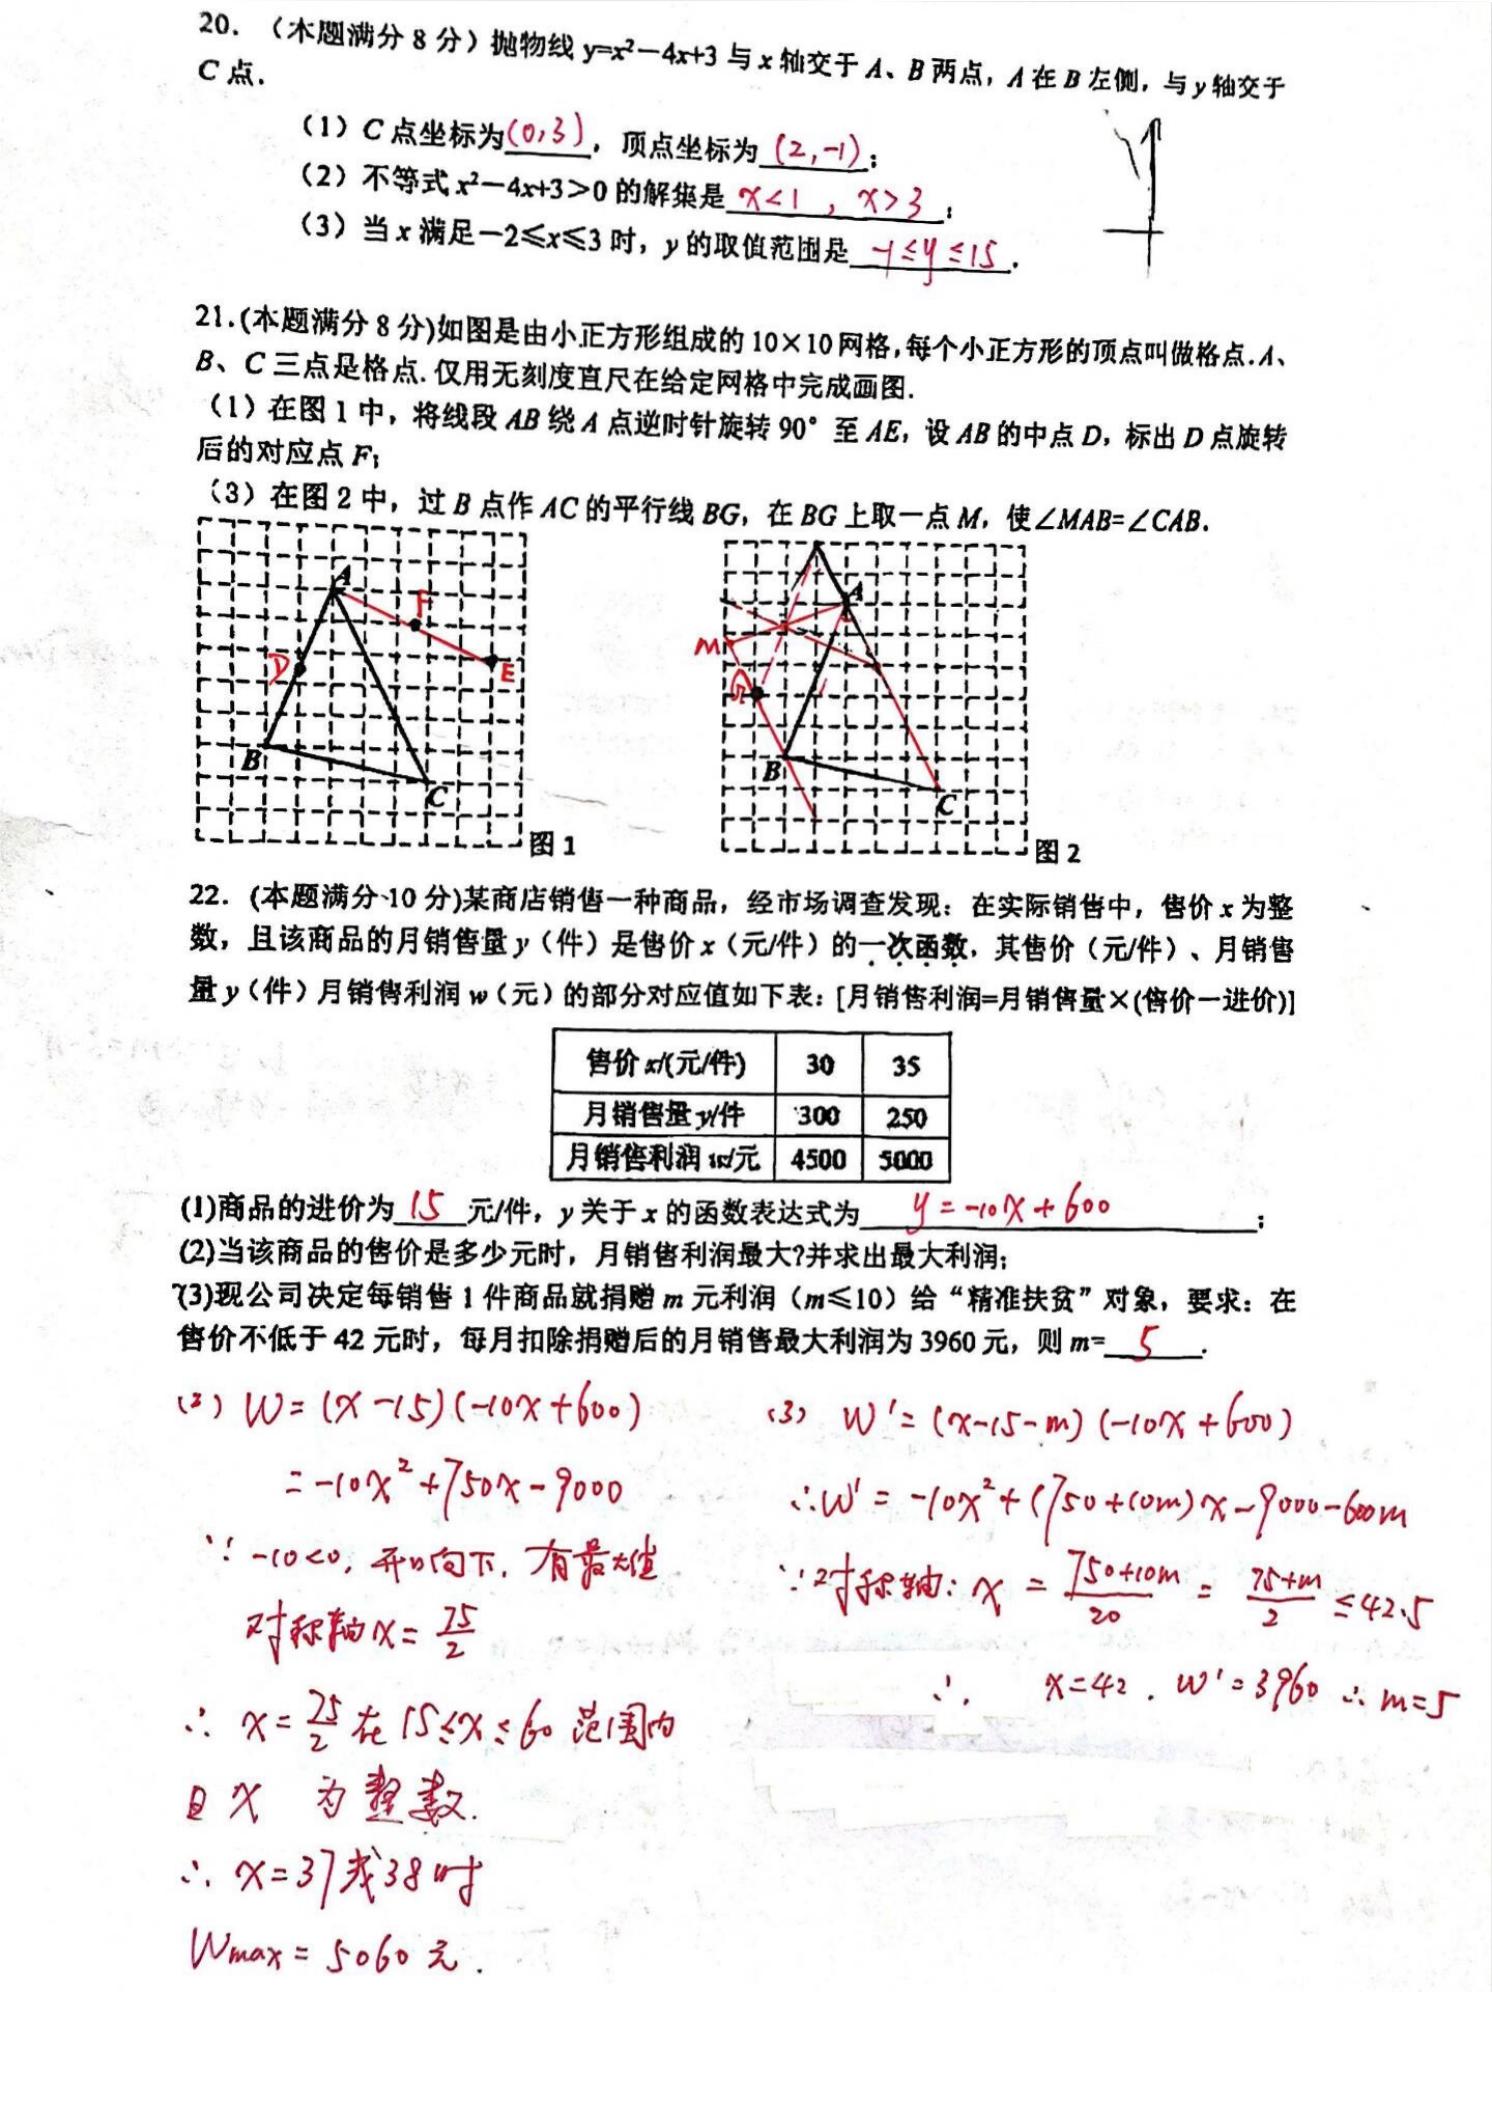 20. （本题满分 8 分）抛物线 y=x²－4x+3 与 x 轴交于 A、B 两点，A 在 B 左侧，与 y 轴交于
C 点.
（1）C 点坐标为(0,3)，顶点坐标为(2,-1)；
（2）不等式 x²－4x+3＞0 的解集是 x<1 , x>3；
（3）当 x 满足－2≤x≤3 时，y 的取值范围是 -1≤y≤15.
21.(本题满分 8 分)如图是由小正方形组成的 10×10 网格,每个小正方形的顶点叫做格点.A、
B、C 三点是格点. 仅用无刻度直尺在给定网格中完成画图.
（1）在图 1 中，将线段 AB 绕 A 点逆时针旋转 90°至 AE，设 AB 的中点 D，标出 D 点旋转
后的对应点 F;
（3）在图 2 中，过 B 点作 AC 的平行线 BG，在 BG 上取一点 M，使∠MAB=∠CAB.
A
F
D
E
B
C
图 1
A
M
G
B
C
图 2
22. (本题满分 10 分)某商店销售一种商品，经市场调查发现：在实际销售中，售价 x 为整
数，且该商品的月销售量 y（件）是售价 x（元/件）的一次函数，其售价（元/件）、月销售
量 y（件）月销售利润 w（元）的部分对应值如下表：[月销售利润=月销售量×(售价一进价)]
售价 x/(元/件) 30 35
月销售量 y/件 300 250
月销售利润 w/元 4500 5000
(1)商品的进价为 15 元/件，y 关于 x 的函数表达式为 y=-10x+600；
(2)当该商品的售价是多少元时，月销售利润最大?并求出最大利润;
(3)现公司决定每销售 1 件商品就捐赠 m 元利润（m≤10）给“精准扶贫”对象，要求：在
售价不低于 42 元时，每月扣除捐赠后的月销售最大利润为 3960 元，则 m= 5.
(2) W=(x-15)(-10x+600)
=-10x²+750x-9000
∵ -10<0, 开口向下, 有最大值
对称轴x=75/2
∴ x=75/2 在 15≤x≤60 范围内
且 x 为整数.
∴ x=37或38时
Wmax=5060元.
(3) W'=(x-15-m)(-10x+600)
∴W'=-10x²+(750+10m)x-9000-600m
∵对称轴: x=750+10m/20=75+m/2≤42.5
∴ x=42 . W'=3960 ∴ m=5